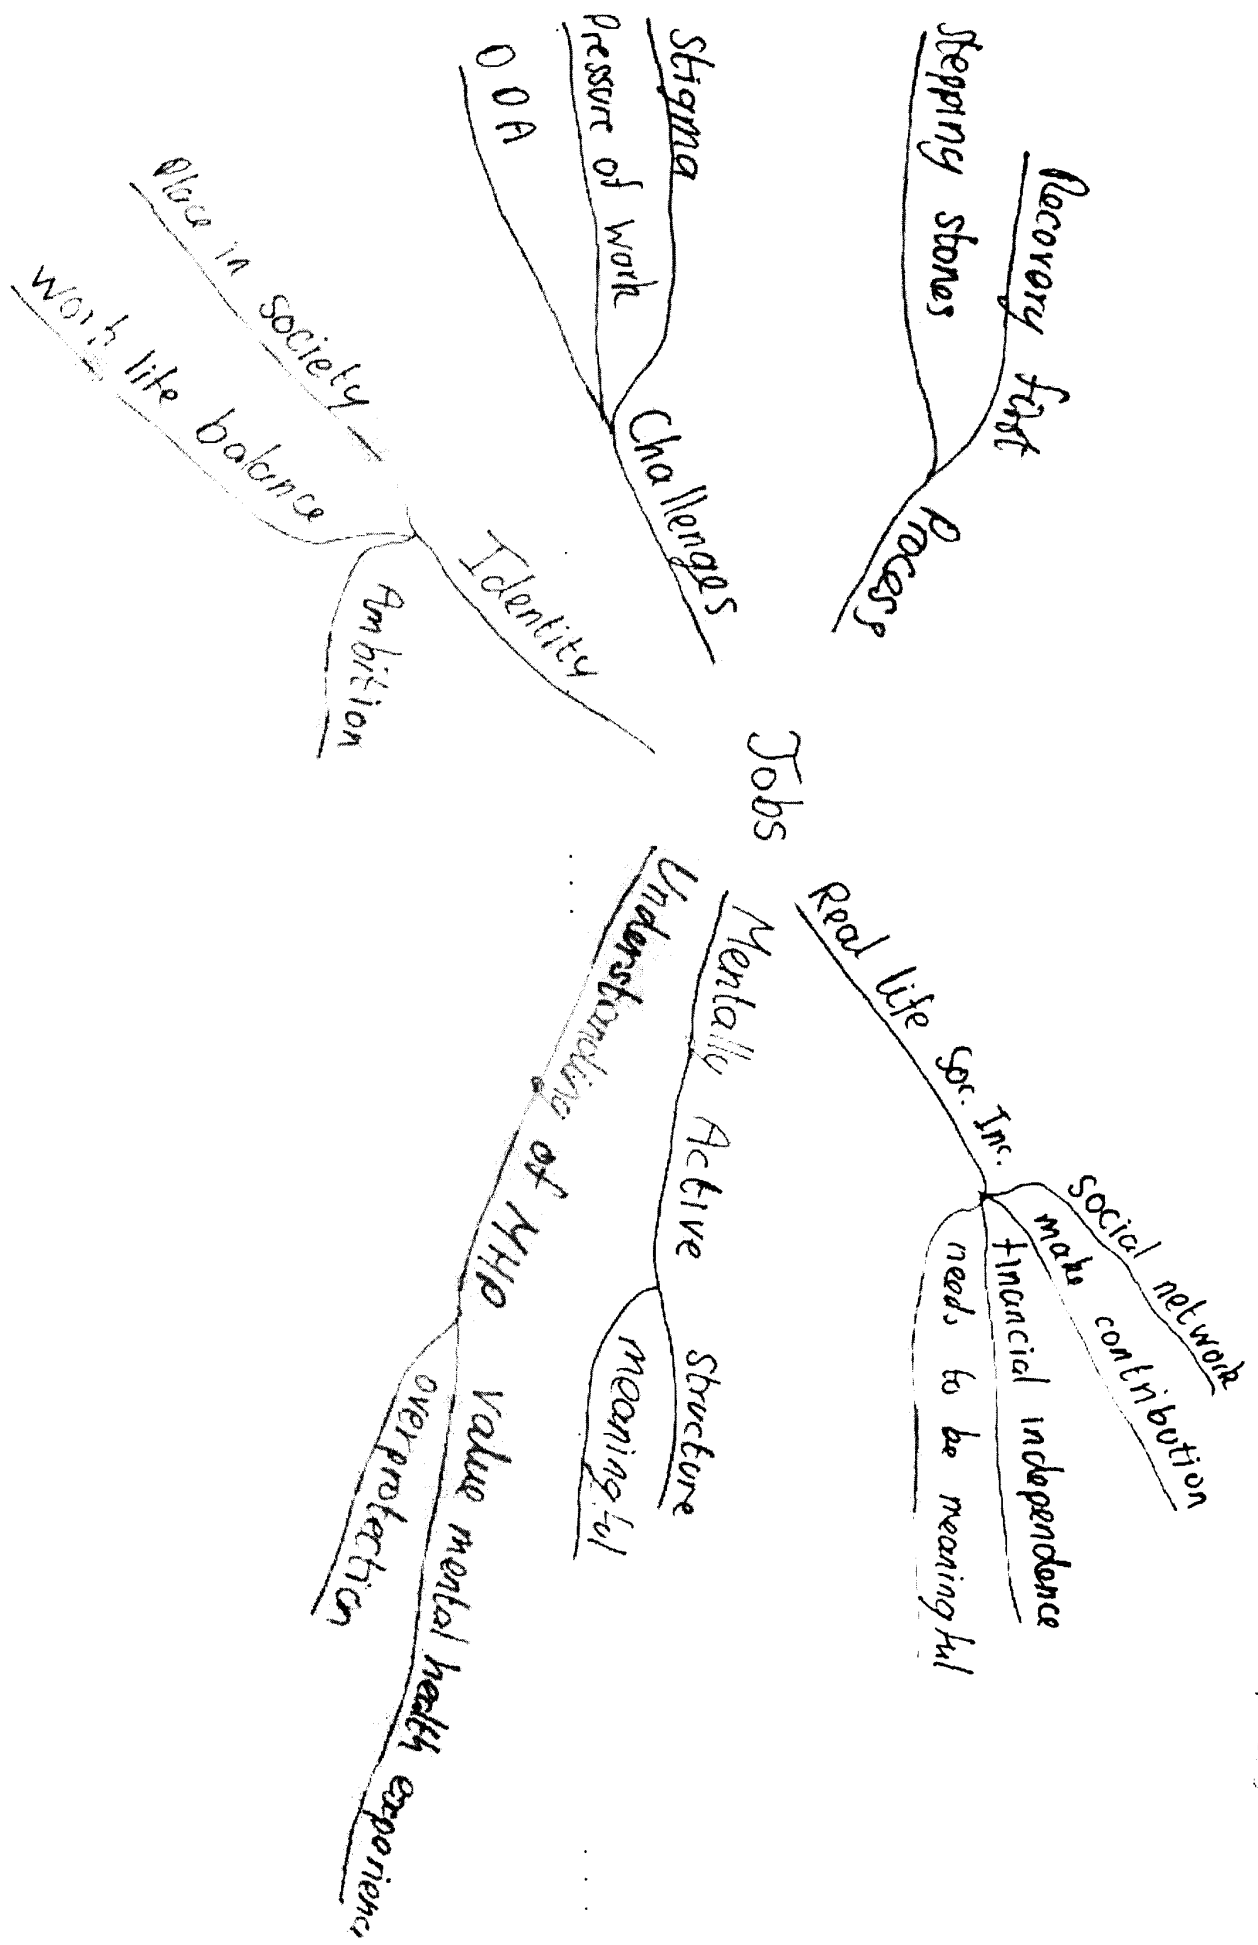 Jobs
Process
Recovery first
Stepping stones
Challenges
Stigma
Pressure of work
DDA
Identity
Place in society
Work life balance
Ambition
Real life Soc. Inc.
social network
make contribution
financial independence
needs to be meaningful
Mentally Active
Structure
meaningful
Understanding of MHP
Value mental health experience
overprotection